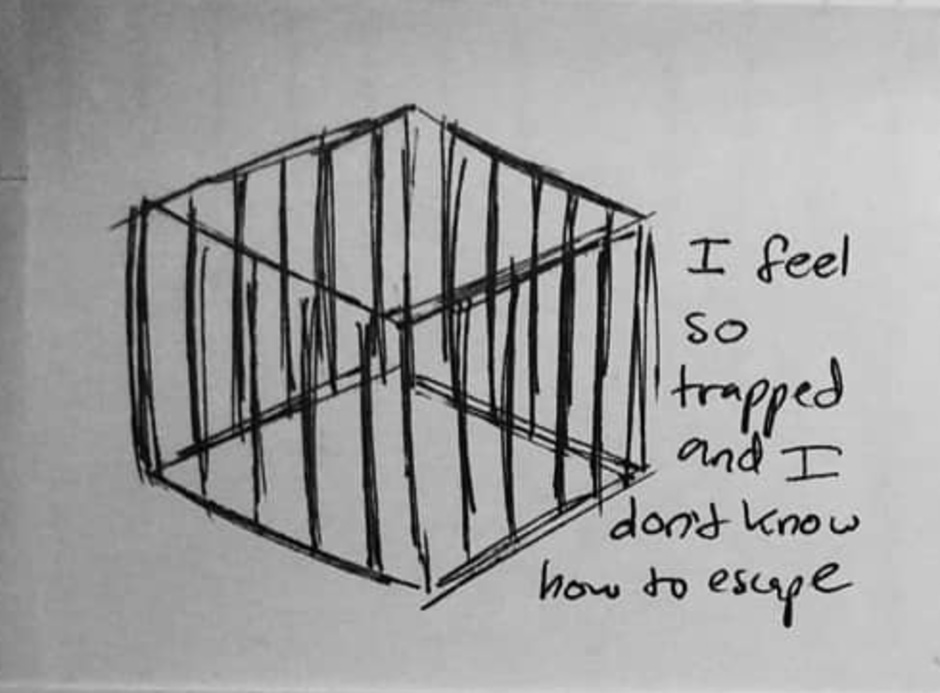 I feel
so
trapped
and I
don't know
how to escape